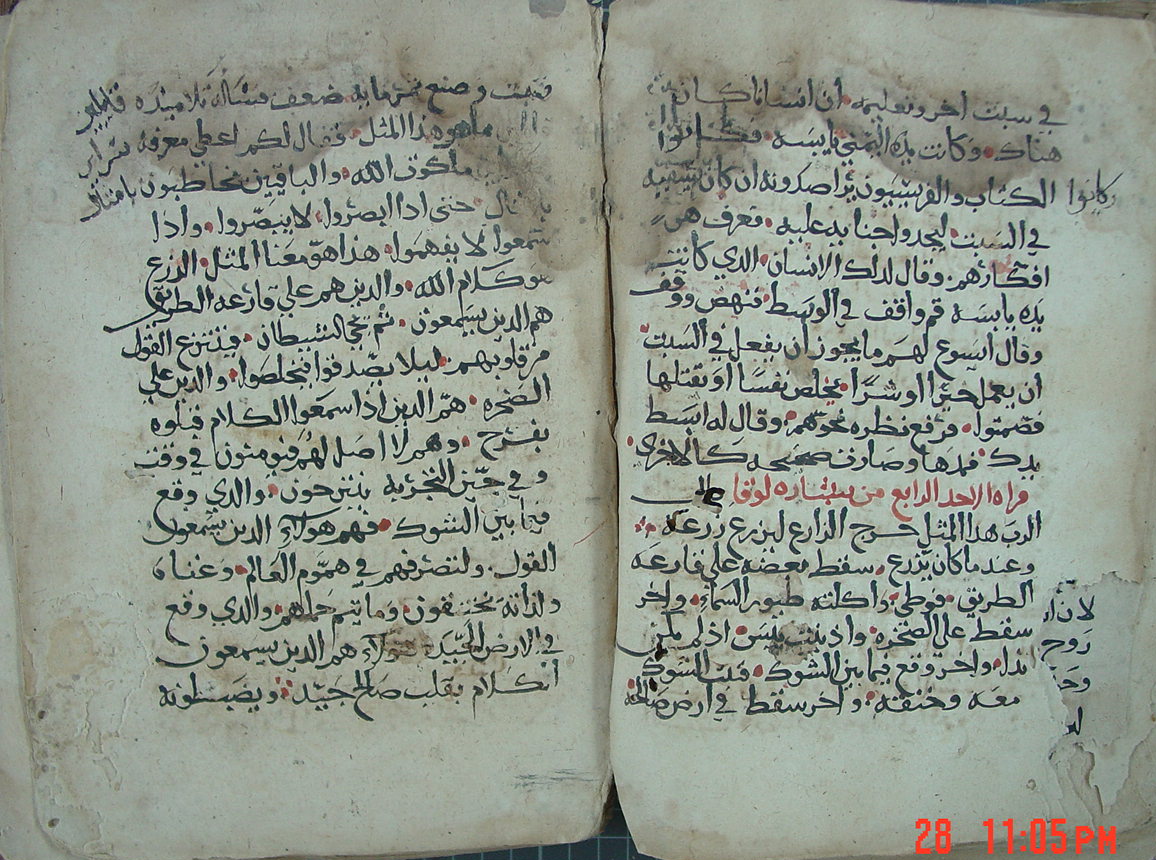 في سبت اخر وتعليمه. ان انسانا كان
هناك. وكانت يده اليمني يابسه. فكانوا
الكتاب والفريسيون يراصدونه ان كان يشفيه
وكانوا
في السبت. ليجدوا جنايه عليه. فعرف هو
افكارهم. وقال لدلك الانسان. الدي كانت
يده يابسه قم واقف في الوسط. فنهض ووقف
وقال ايسوع لهم ما يجوز ان يفعل في السبت
ان يعمل خيرا او شرا. يخلص نفسا او تقتلها
فصمتوا. فرفع نظره نحوهم. وقال له ابسط
يدك. فمدها وصارت صحيحه كالاخري.
قراه الاحد الرابع من بشاره لوقا قال
الرب هذا المثل خرج الزارع ليزرع زرعه
وعندما كان يزرع. سقط بعضه علي قارعه
الطريق. فوطي. واكلته طيور السماء. واخر
سقط علي الصخره. واد نبت يبس. اذ لم يكن
ندا. واخر وقع فيما بين الشوك. فنبت الشوك
معه وخنقه. واخر سقط في ارض صالحه
لان
روح
فنبت وصنع ثمر مايه ضعف فسأله تلاميده قايلين
ما هو هذا المثل. فقال لكم اعطي معرفة سراير
ملكوت الله. والباقيين نخاطبون بامثال
حتي ادا ابصروا. لا يبصروا. وادا
سمعوا لا يفهموا. هذا هو معنا المثل. الزرع
هو كلام الله. والدين هم علي قارعه الطريق
هم الدين يسمعون. ثم يجي الشيطان. فينتزع القول
من قلوبهم. ليلا يصدقوا فيخلصوا. والدين علي
الصخره. هم الدين اذا سمعوا الكلام قبلوه
بفرح. وهم لا اصل لهم فيومنون في وقت
وفي حين التجربه ينزحون. والدي وقع
فيما بين الشوك. فهم هولاء الدين يسمعون
القول. ولتصرفهم في هموم العالم. وغناه
ولداته يختنقون. وما يتم حملهم. والدي وقع
في الارض الجيده هولاء هم الدين يسمعون
الكلام بقلب صالح جيد. ويضبطونه
28 11:05 PM